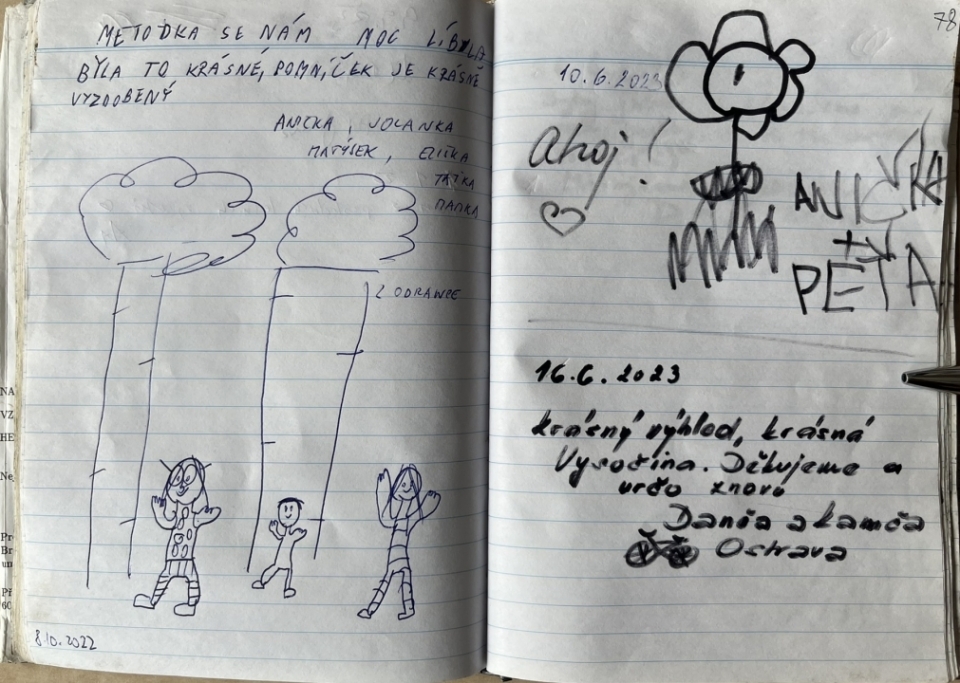 METOĎKA SE NÁM MOC LÍBILA
BYLA TO KRÁSNÉ, POMNÍČEK JE KRÁSNĚ
VYZDOBENÝ
ANIČKA, JOLANKA
MATÝSEK, ELIŠKA
TAŤKA
MAMKA
Z ODRAWCE
8.10.2022
78
10.6.2023
Ahoj!
ANIČKA
+
PÉŤA
16.6.2023
krásný výhled, krásná
Vysočina. Děkujeme a
určo znovu
Danča a Kamča
Ostrava
NA
VZ
HE
Ne
Pr
Br
un
Př
60